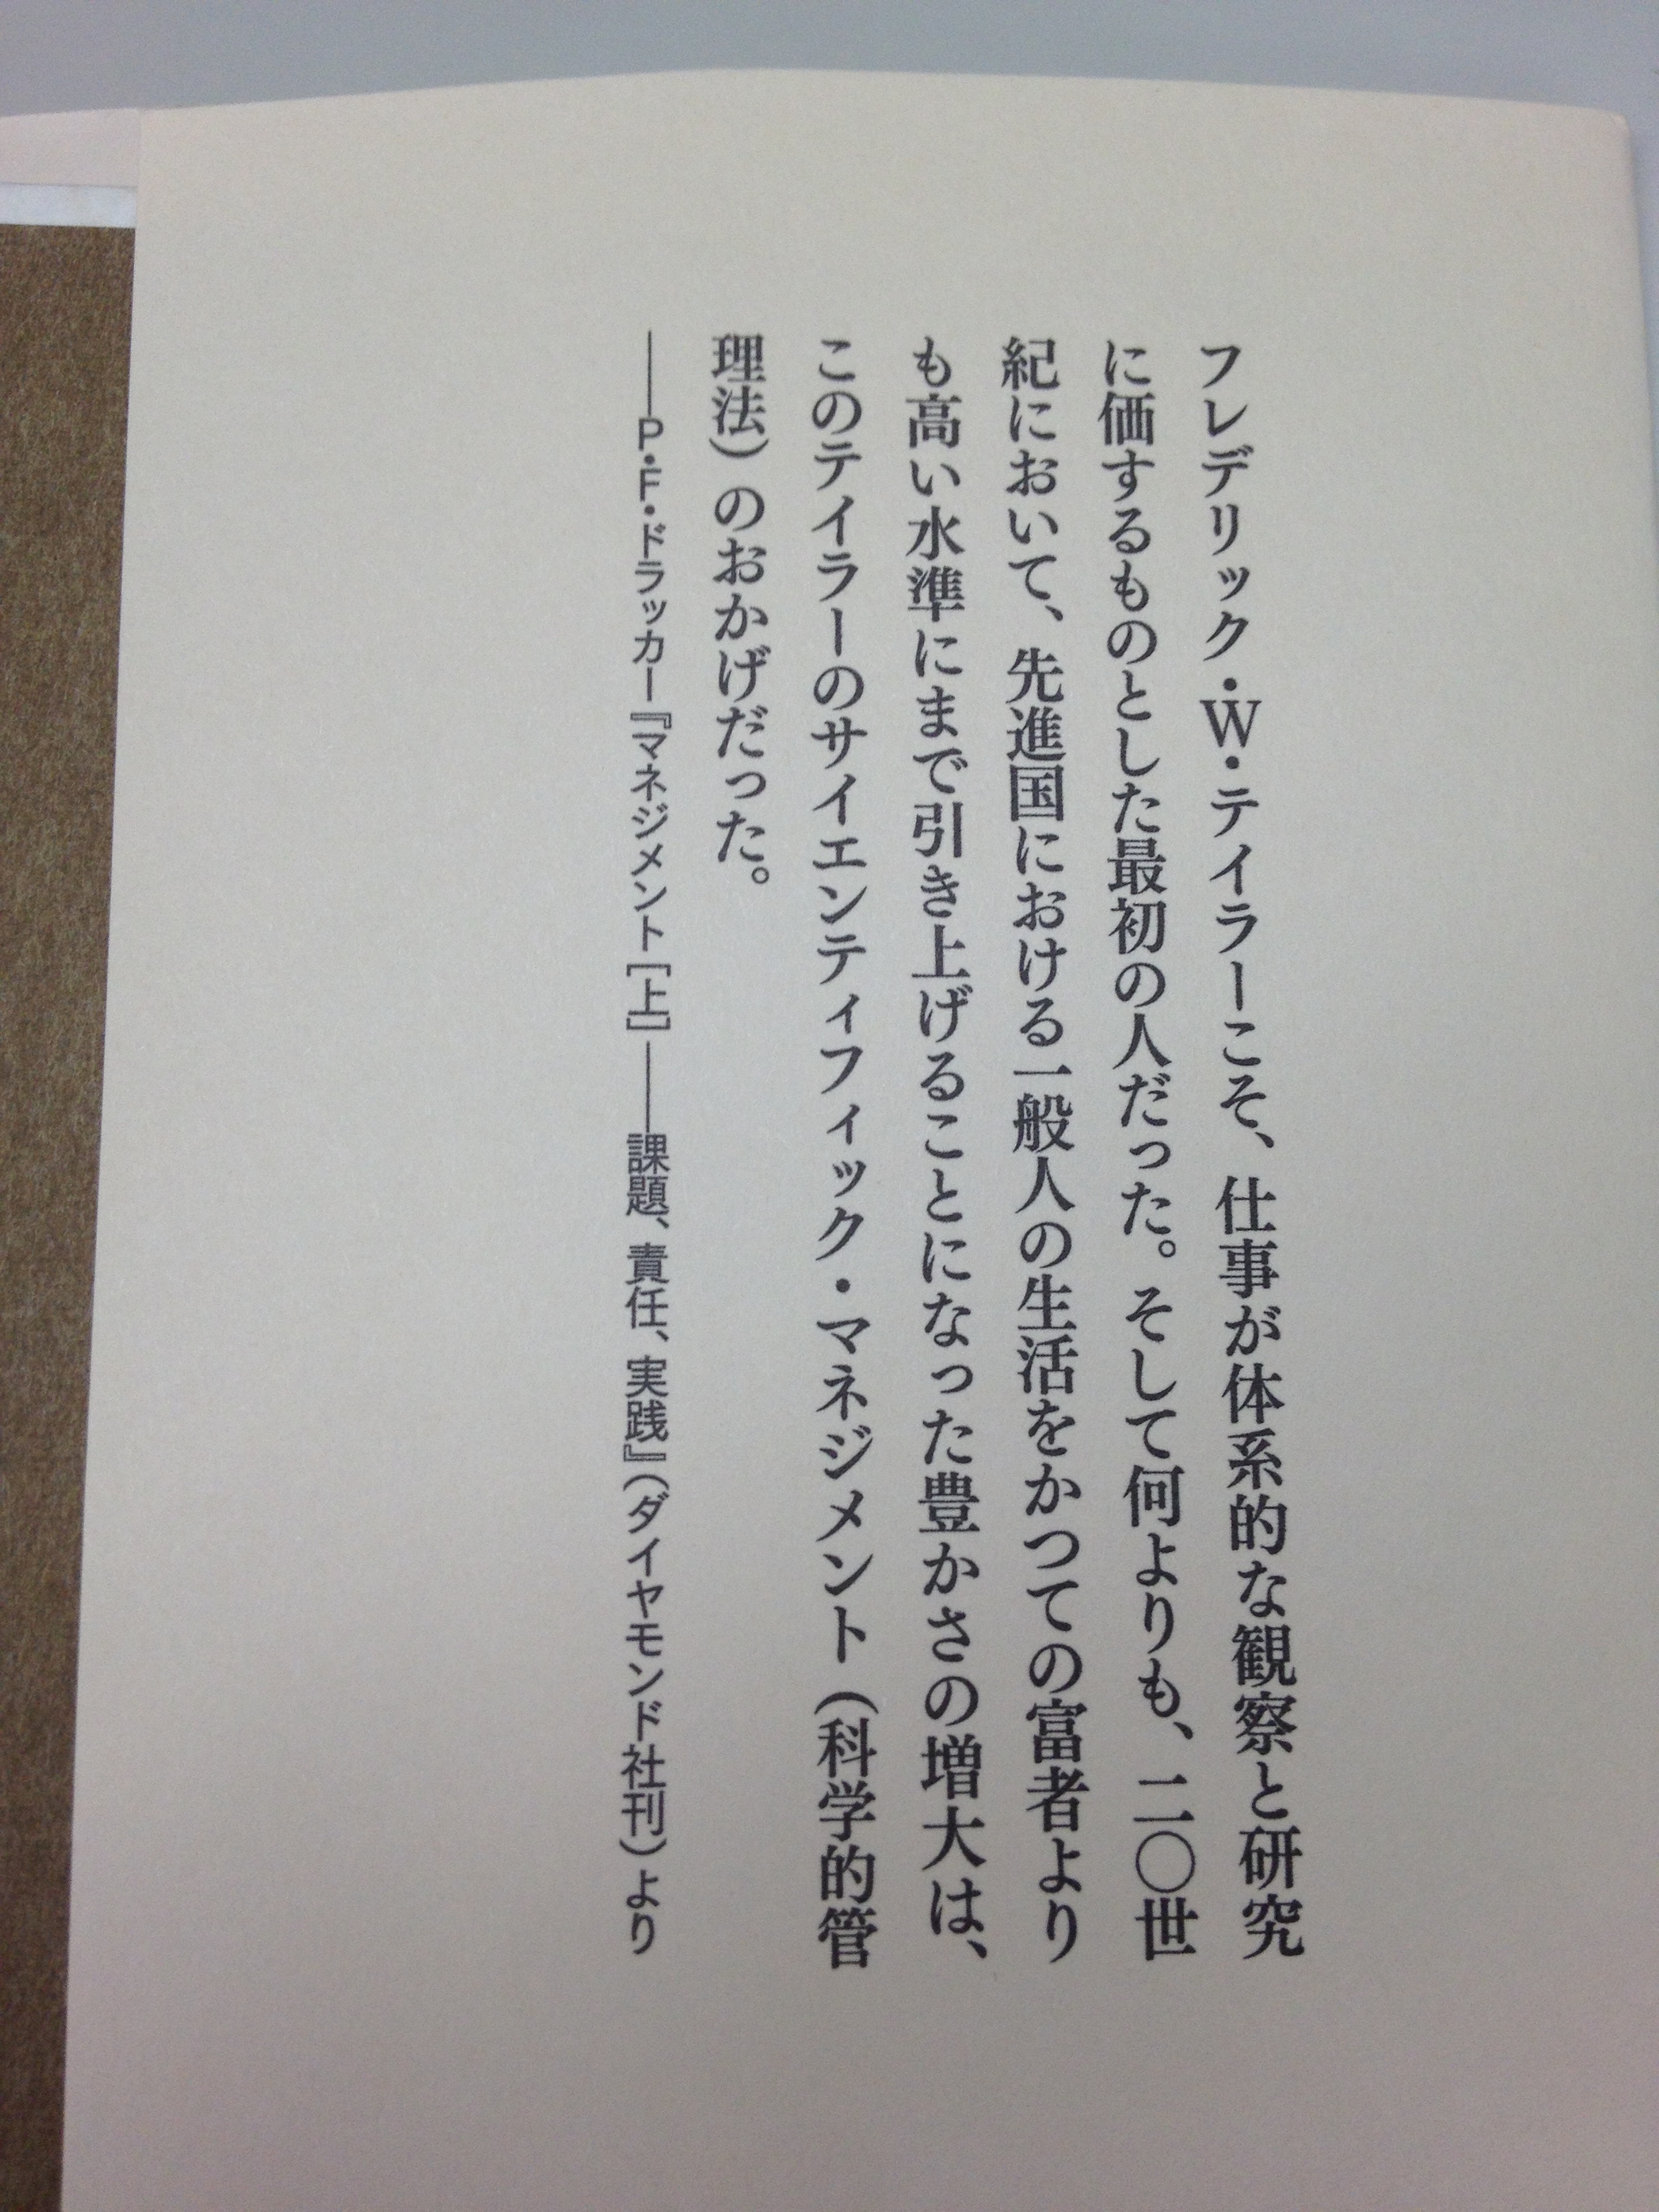 フレデリック・W・テイラーこそ、仕事が体系的な観察と研究
に価するものとした最初の人だった。そして何よりも、二〇世
紀において、先進国における一般人の生活をかつての富者より
も高い水準にまで引き上げることになった豊かさの増大は、
このテイラーのサイエンティフィック・マネジメント（科学的管
理法）のおかげだった。
――P・F・ドラッカー『マネジメント［上］――課題、責任、実践』（ダイヤモンド社刊）より